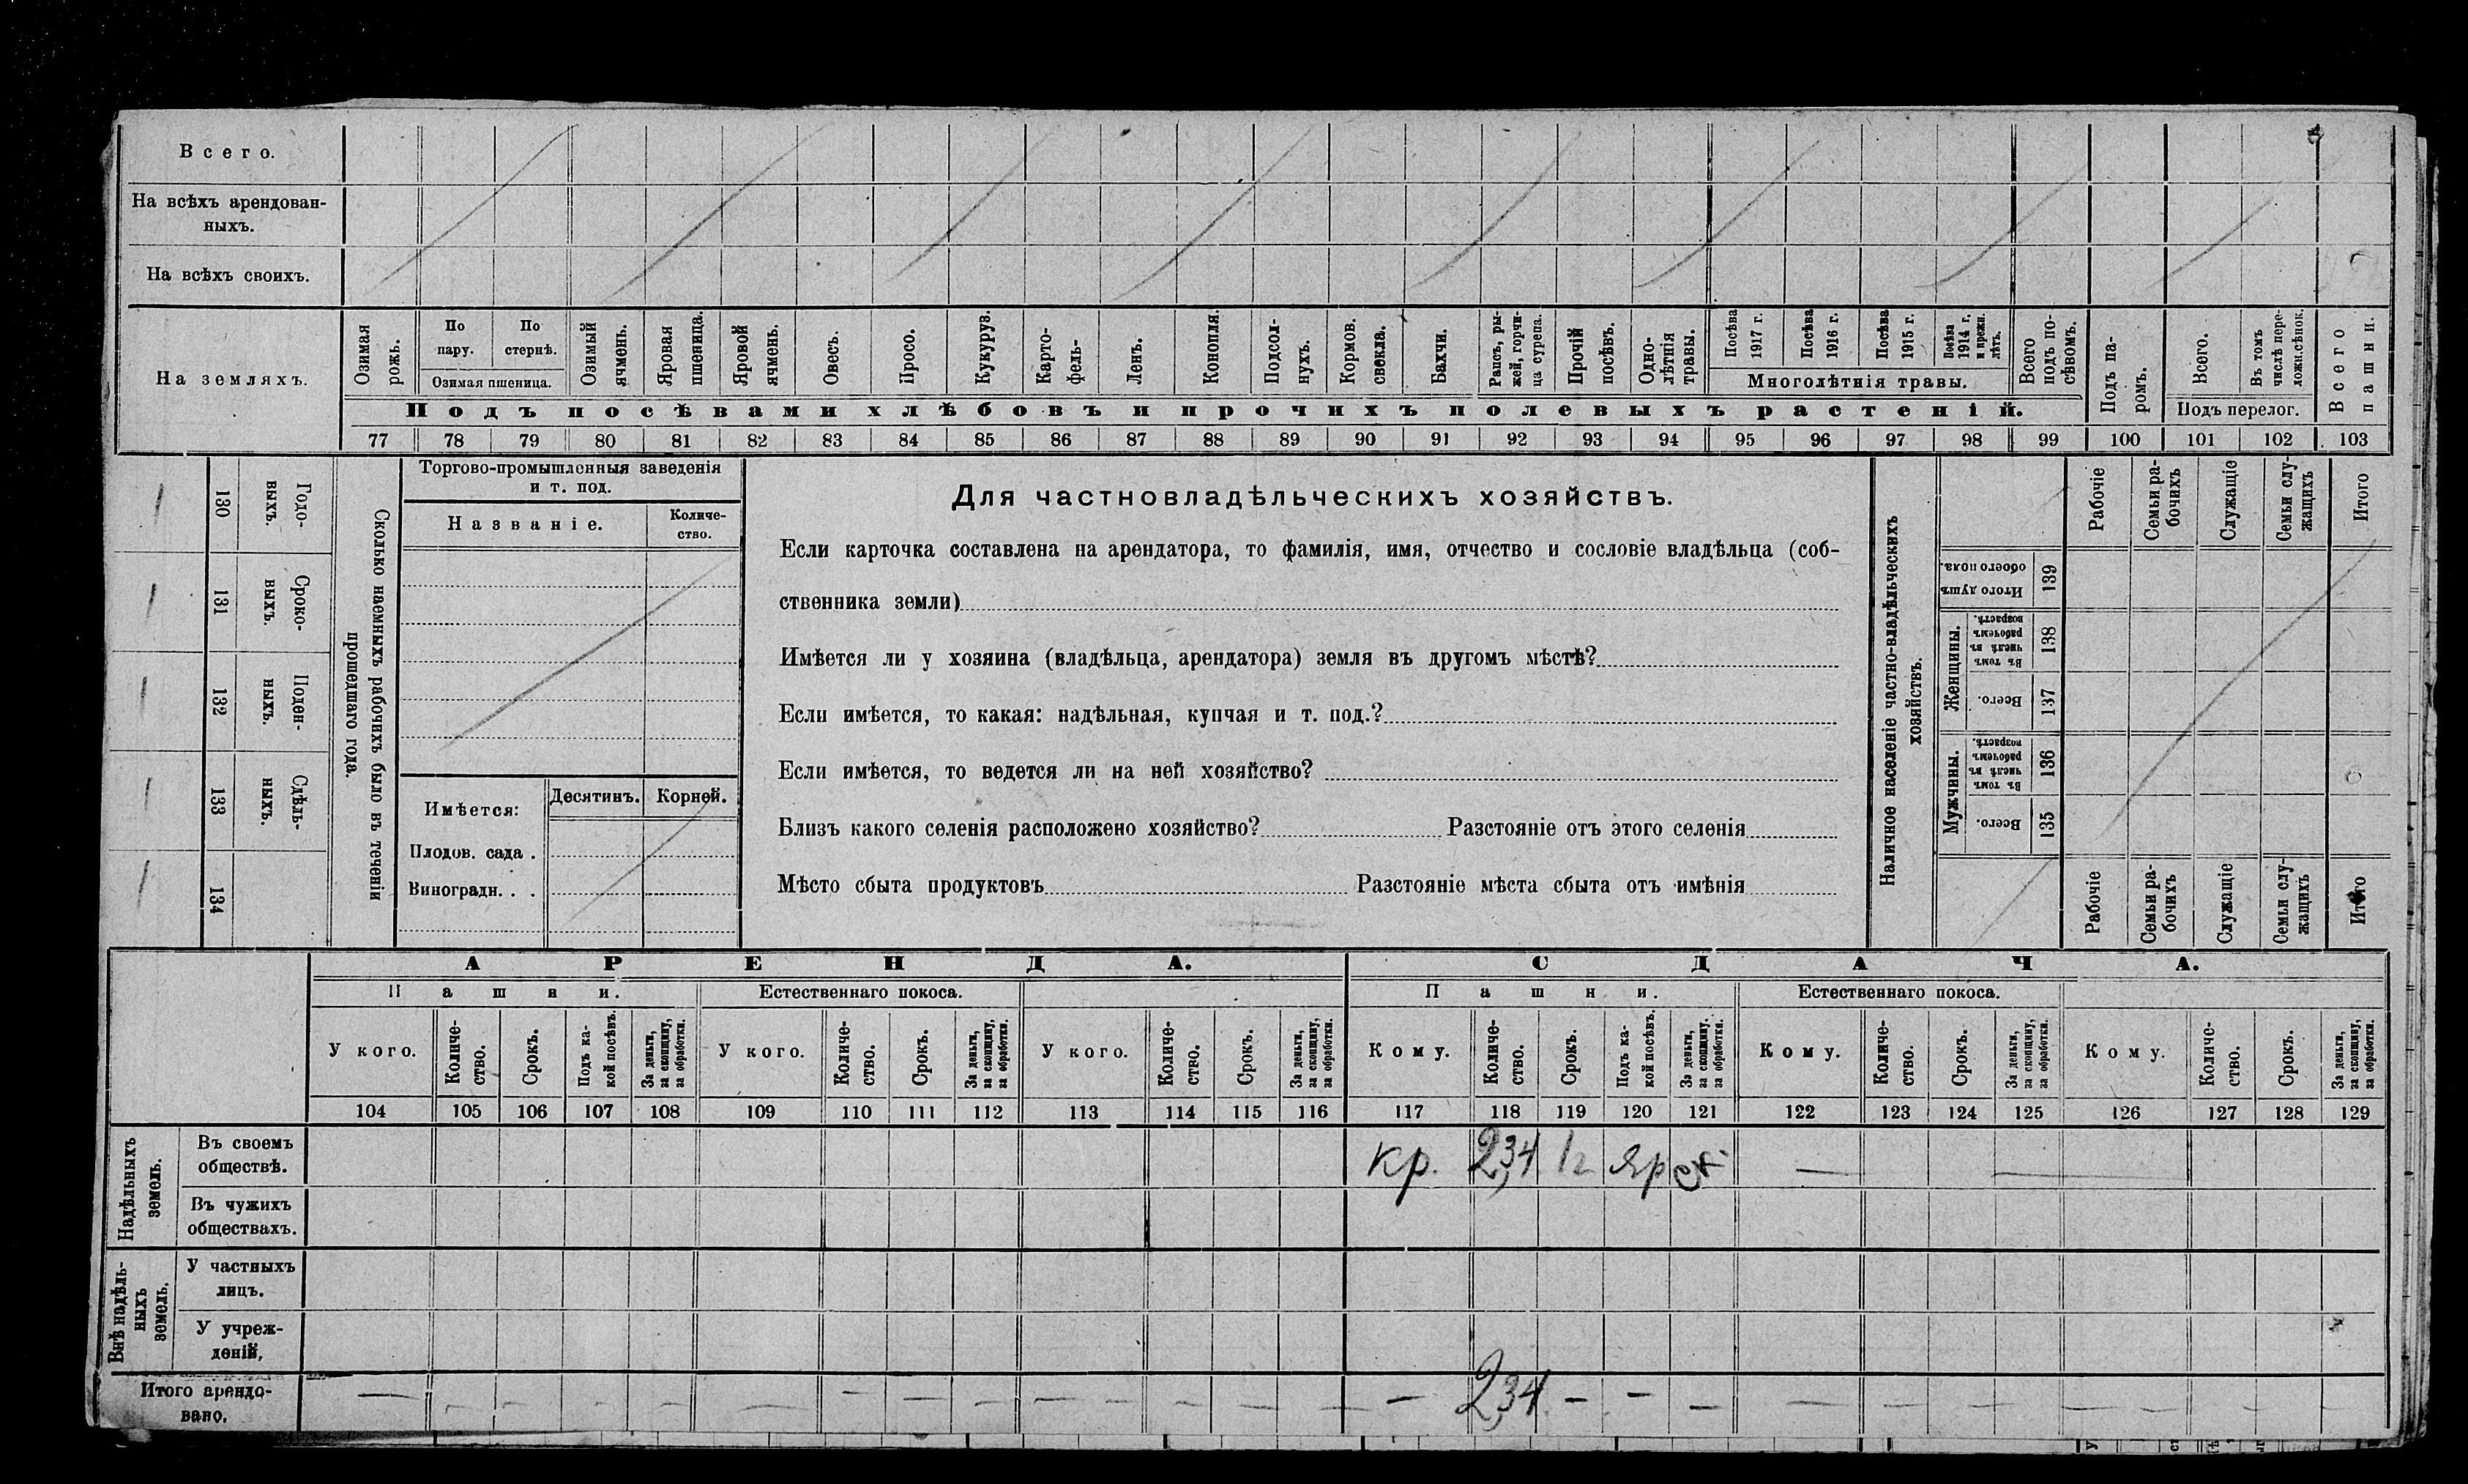 Всего.
На всѣхъ арендован-
ныхъ.
На всѣхъ своихъ.
На земляхъ.
Озимая рожь.
По пару.
По стернѣ.
Озимая пшеница.
Озимый ячмень.
Яровая пшеница.
Яровой ячмень.
Овесъ.
Просо.
Кукуруз.
Карто-
фель-
Ленъ.
Конопля.
Подсол-
нухъ.
Кормов.
свекла.
Бахчи.
Рапсъ, ры-
жей, горчи-
ца сурепа.
Прочій
посѣвъ.
Одно-
лѣтнія
травы.
Посѣва
1917 г.
Посѣва
1916 г.
Посѣва
1915 г.
Посѣва
1914 г.
и прежн.
лѣтъ.
Многолѣтнія травы.
Всего
подъ по-
сѣвомъ.
Подъ па-
ромъ.
Всего.
Въ томъ
числѣ пере-
ложн.сѣнок.
Подъ перелог.
Всего
пашни.
Подъ посѣвами хлѣбовъ и прочихъ полевыхъ растеній.
77 78 79 80 81 82 83 84 85 86 87 88 89 90 91 92 93 94 95 96 97 98 99 100 101 102 103
130
Годо-
выхъ.
131
Сроко-
выхъ.
132
Поден-
ныхъ.
133
Сдѣль-
ныхъ.
134
Сколько наемныхъ рабочихъ было въ теченіи
прошедшаго года.
Торгово-промышленныя заведенія
и т. под.
Названіе.
Количе-
ство.
Имѣется:
Десятинъ.
Корней.
Плодов. сада .
Виноградн. . .
Для частновладѣльческихъ хозяйствъ.
Если карточка составлена на арендатора, то фамилія, имя, отчество и сословіе владѣльца (соб-
ственника земли)
Имѣется ли у хозяина (владѣльца, арендатора) земля въ другомъ мѣстѣ?
Если имѣется, то какая: надѣльная, купчая и т. под.?
Если имѣется, то ведется ли на ней хозяйство?
Близъ какого селенія расположено хозяйство? Разстояніе отъ этого селенія
Мѣсто сбыта продуктовъ Разстояніе мѣста сбыта отъ имѣнія
Наличное населеніе частно-владѣльческихъ
хозяйствъ.
Рабочіе
Семьи ра-
бочихъ
Служащіе
Семьи слу-
жащихъ
Итого
Итого душъ
обоего пола.
139
Женщины.
Въ томъ
числѣ въ
рабочемъ
возрастѣ.
138
Всего.
137
Мужчины.
Въ томъ
числѣ въ
рабочемъ
возрастѣ.
136
Всего.
135
Рабочіе
Семьи ра-
бочихъ
Служащіе
Семьи слу-
жащихъ
Итого
АРЕНДА.
СДАЧА.
Пашни.
Естественнаго покоса.
Пашни.
Естественнаго покоса.
У кого.
Количе-
ство.
Срокъ.
Подъ ка-
кой посѣвъ.
За деньги,
за скопщину,
за обработки.
У кого.
Количе-
ство.
Срокъ.
За деньги,
за скопщину,
за обработки.
У кого.
Количе-
ство.
Срокъ.
За деньги,
за скопщину,
за обработки.
Кому.
Количе-
ство.
Срокъ.
Подъ ка-
кой посѣвъ.
За деньги,
за скопщину,
за обработки.
Кому.
Количе-
ство.
Срокъ.
За деньги,
за скопщину,
за обработки.
Кому.
Количе-
ство.
Срокъ.
За деньги,
за скопщину,
за обработки.
104 105 106 107 108 109 110 111 112 113 114 115 116 117 118 119 120 121 122 123 124 125 126 127 128 129
Надѣльныхъ
земель.
Въ своемъ
обществѣ.
кр. 2,34 1г яр
Въ чужихъ
обществахъ.
Внѣ надѣль-
ныхъ
земель.
У частныхъ
лицъ.
У учреж-
деній,
Итого арендо-
вано.
— 2,34 — —